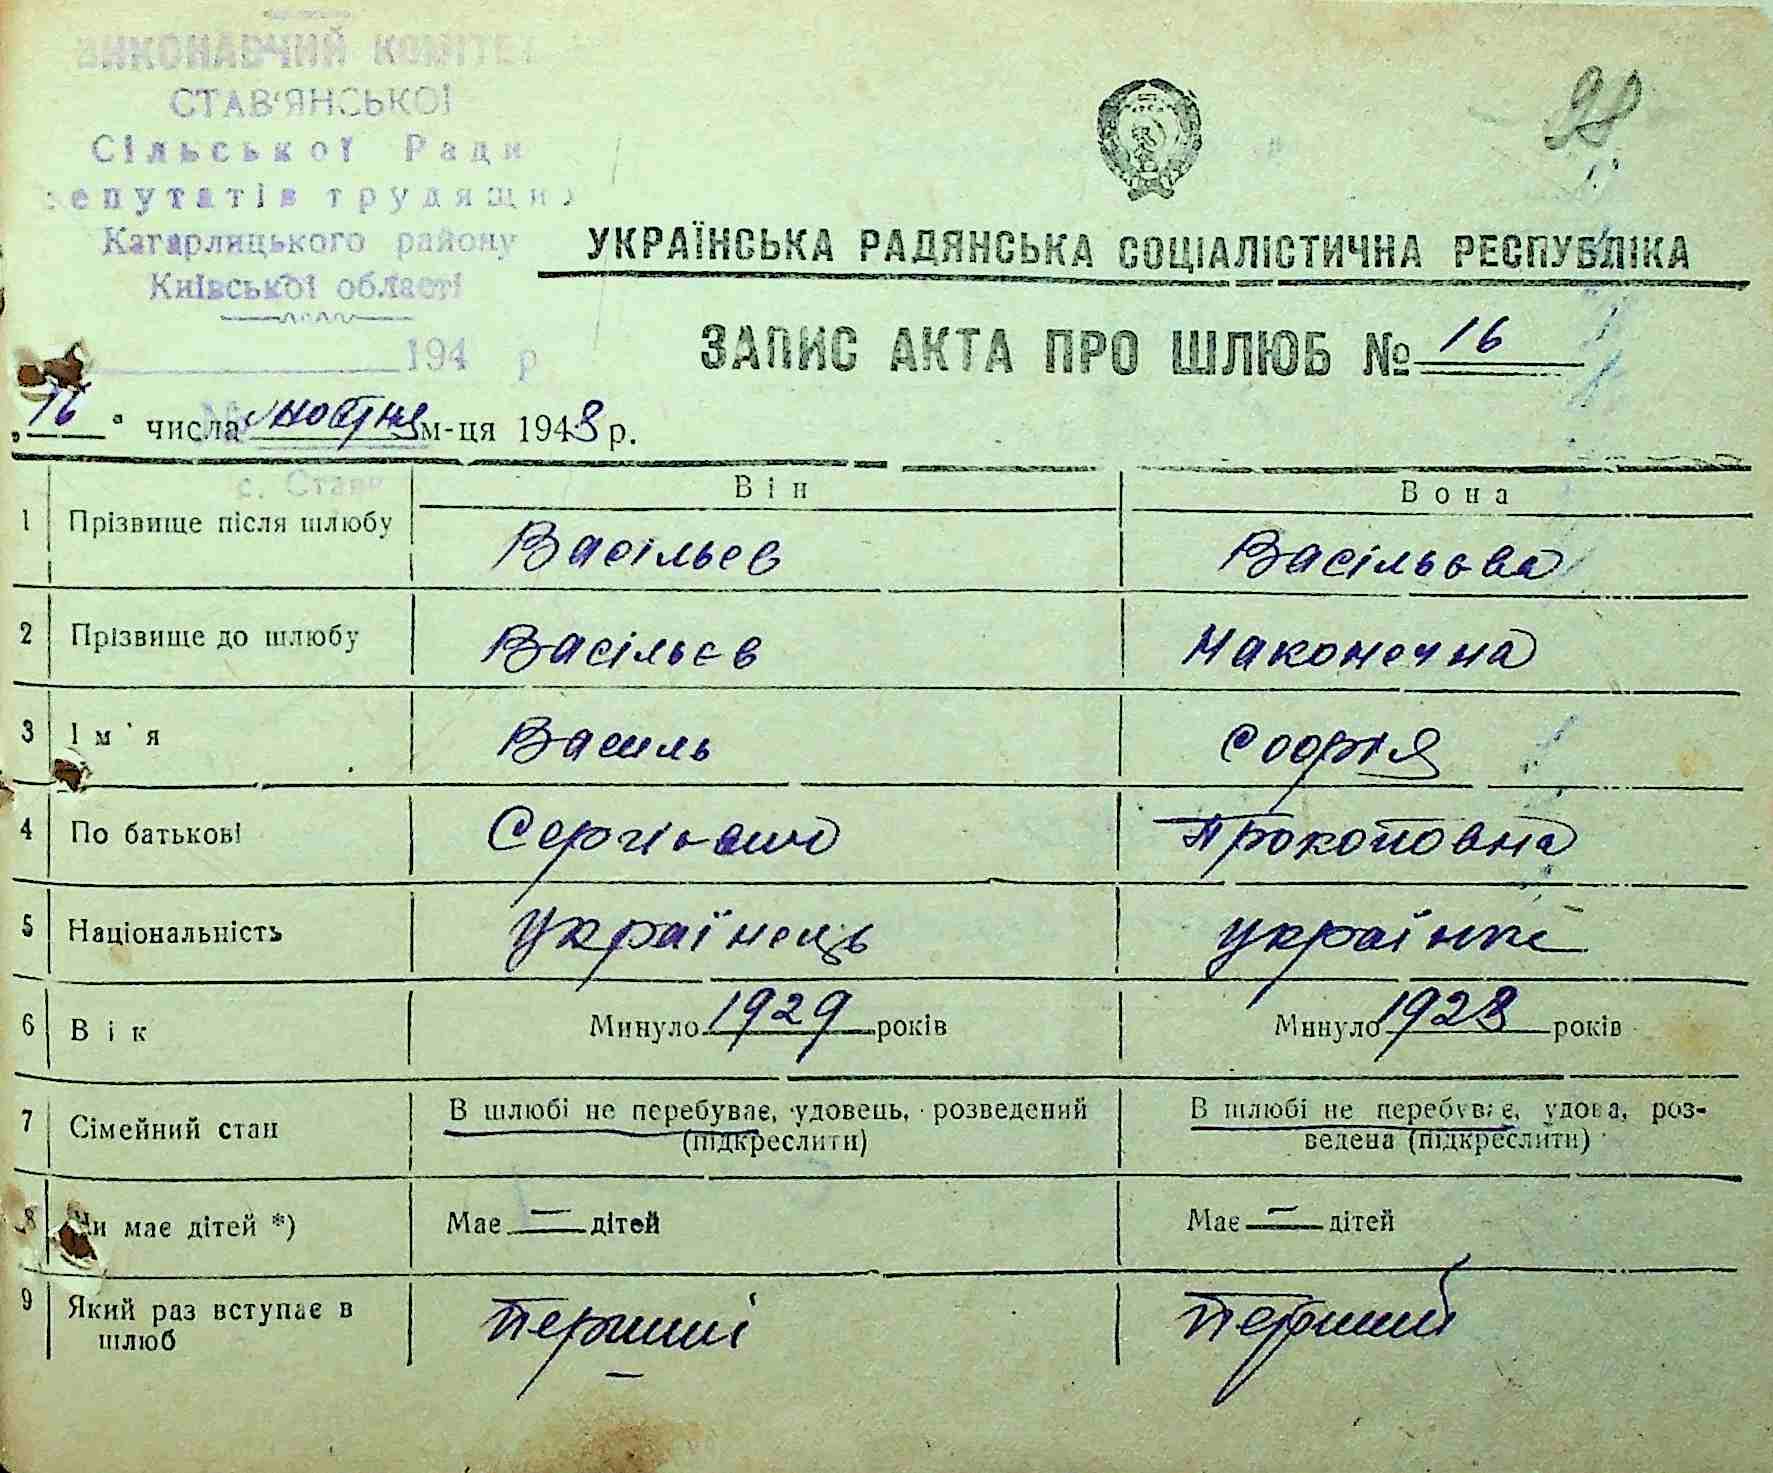 ВИКОНАВЧИЙ КОМІТЕТ
СТАВ'ЯНСЬКОЇ
Сільської Ради
депутатів трудящих
Кагарлицького району
Київської області
194 р
98
УКРАЇНСЬКА РАДЯНСЬКА СОЦІАЛІСТИЧНА РЕСПУБЛІКА
ЗАПИС АКТА ПРО ШЛЮБ № 16
„16" числа жовтня м-ця 1948 р.
с. Стави
Він Вона
1 Прізвище після шлюбу Васільєв Васільєва
2 Прізвище до шлюбу Васільєв Наконечна
3 Ім'я Василь Софія
4 По батькові Сергієвич Прокоповна
5 Національність Українець українка
6 Вік Минуло 1929 років Минуло 1928 років
7 Сімейний стан В шлюбі не перебуває, удовець, розведений (підкреслити) В шлюбі не перебуває, удова, роз-
ведена (підкреслити)
8 Чи має дітей *) Має — дітей Має — дітей
9 Який раз вступає в шлюб перший перший